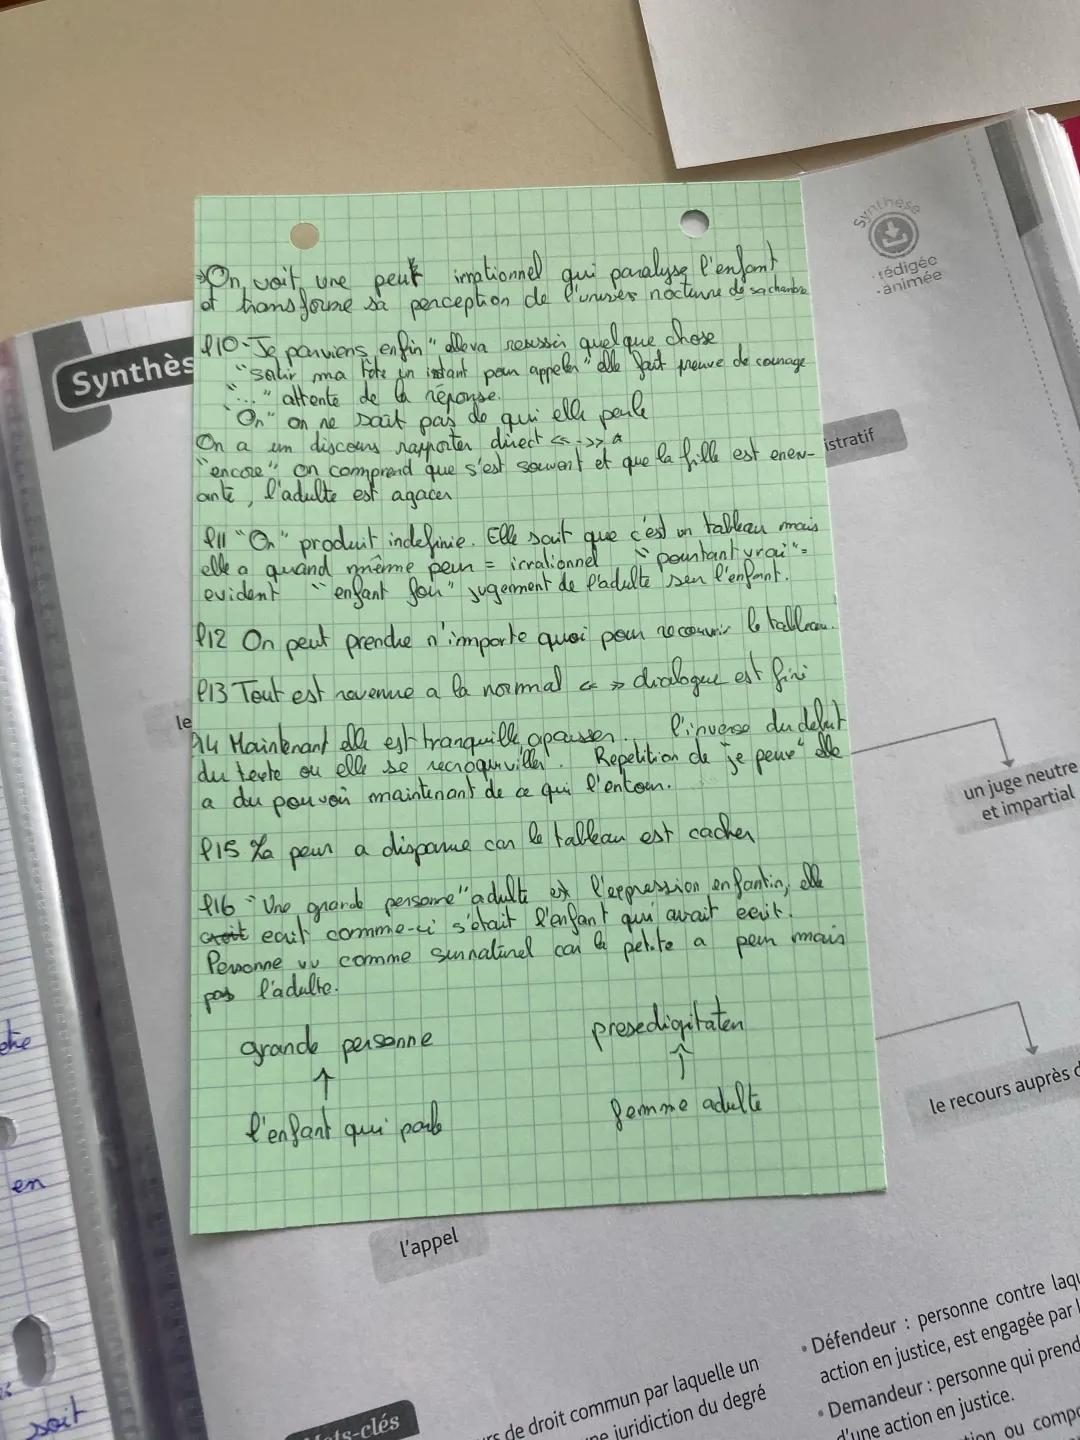 Synthèse
rédigée
.animée
Synthès
→On voit une peur irrationnel qui paralyse l'enfant
et transforme sa perception de l'univers nocturne de sa chambre
l10-"Je parviens enfin" elle va reussir quelque chose
"sortir ma tête un instant pour appeler" elle fait preuve de courage
"..." attente de la réponse.
"On" on ne sait pas de qui elle parle
On a un discours rapporter direct « - »
"encore" on comprend que s'est souvent et que la fille est enerv-
ante, l'adulte est agacer
istratif
l11 "On" produit indefinie. Elle sait que c'est un tableau mais
elle a quand même peur = irrationnel "pourtant vrai" =
evident "enfant fou" jugement de l'adulte sur l'enfant.
l12 On peut prendre n'importe quoi pour recouvrir le tableau.
l13 Tout est revenue a la normal « » dialogue est fini
le
l14 Maintenant elle est tranquille, apaiser. l'inverse du debut
du texte ou elle se recroqueviller. Repetition de "je peux" elle
a du pouvoir maintenant de ce qui l'entour.
un juge neutre
et impartial
l15 La peur a disparue car le tableau est cacher
l16 "Une grande personne" adulte est l'expression enfantin, elle
ecrit comme-ci s'était l'enfant qui avait ecrit.
Personne vu comme surnaturel car la petite a peur mais
pas l'adulte.
grande personne
↑
l'enfant qui parle
presedigitaten
↑
femme adulte
le recours auprès d
en
soit
l'appel
• Défendeur : personne contre laqu
action en justice, est engagée par l
• Demandeur : personne qui prend
d'une action en justice.
tion ou compo
Mots-clés
rs de droit commun par laquelle un
ne juridiction du degré